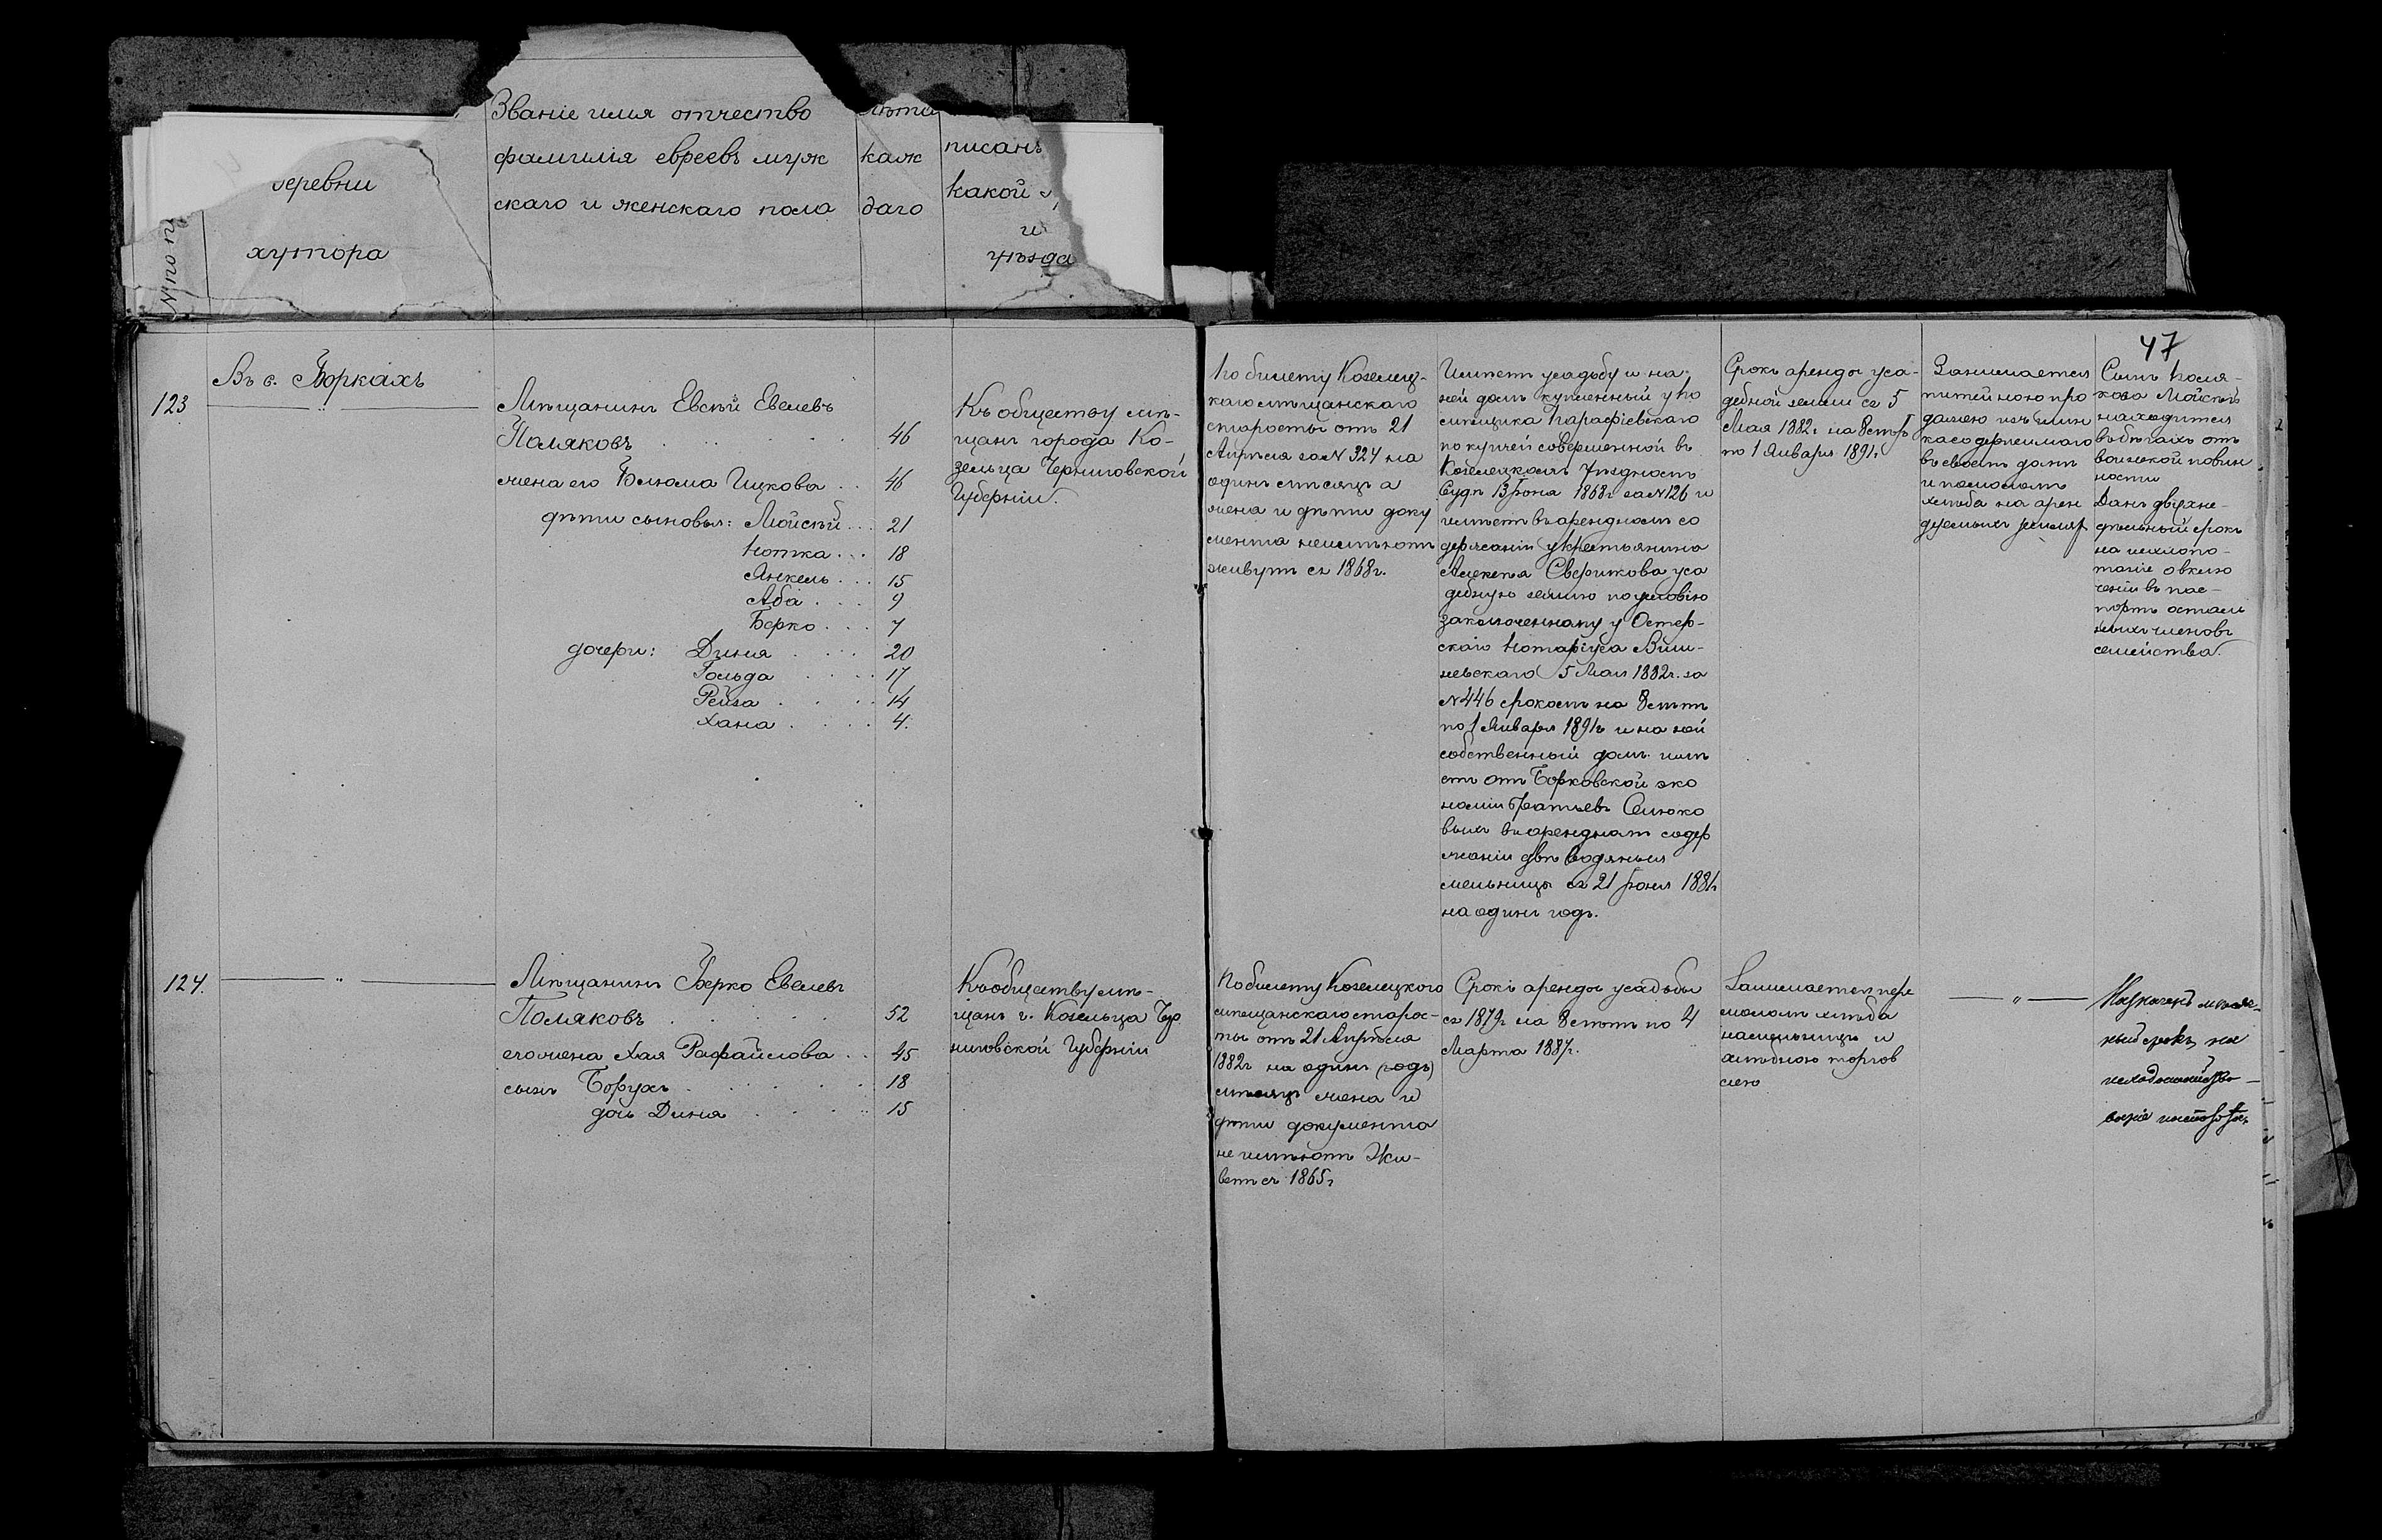 47
деревни
хутора
Званіе имя отчество
фамилія евреевъ муж
скаго и женскаго пола
лѣта
каж
даго
писанъ
какой
и
уѣзда
№ по п
Въ с. Боркахъ
123
Мѣщанинъ Евсѣй Евелевъ
Поляковъ 46
жена его Блюма Ицкова 46
дѣти сыновья: Мойсѣй 21
Нотка 18
Янкель 15
Аба 9
Берко 7
дочери: Диня 20
Гольда 17
Рейза 14
Хана 4.
Къ обществу мѣ-
щанъ города Ко-
зельца Черниговской
Губерніи.
По билету Козелец-
каго мѣщанскаго
старосты отъ 21
Апрѣля за № 324 на
одинъ мѣсяцъ а
жена и дѣти доку
мента неимѣютъ
живутъ съ 1868г.
Имѣетъ усадьбу и на
ней домъ купленный у по
мѣщика Парафіевскаго
по купчей совершенной въ
Козелецкомъ Уѣздномъ
Судѣ 13 Іюня 1868г за № 126 и
имѣетъ въ арендномъ со
держаніи у крестьянина
Алексѣя Сверикова уса
дебную землю по условію
заключенному у Остер-
скаго Нотаріуса Виш-
невскаго 5 Мая 1882г. за
№ 446 срокомъ на 8 лѣтъ
по 1 Января 1891г и на ней
собственный домъ. имѣ
етъ отъ Борковской эко
номіи Братьевъ Селюко
выхъ въ арендномъ содер
жаніи двѣ водяныя
мельницы съ 21 Іюня 1881г
на одинъ годъ.
Срокъ аренды уса-
дебной земли съ 5
Мая 1882г. на 8 лѣтъ
по 1 Января 1891г.
Занимается
питейною про
дажею изъ шин
ка содержимаго
въ своемъ домѣ
и помоломъ
хлѣба на арен
дуемыхъ земляхъ
Сынъ Поля-
кова Мойсѣй
находится
въ бѣгахъ отъ
воинской повин
ности
Данъ двухне-
дѣльный срокъ
на исхлопо-
таніе о вклю
ченіи въ пас-
портъ осталь
ныхъ членовъ
семейства.
124.
Мѣщанинъ Берко Евелевъ
Поляковъ 52
его жена Хая Рафаилова 45
сынъ Борухъ 18
дочь Диня 15
Къ обществу мѣ-
щанъ г. Козельца Чер
ниговской Губерніи
По билету Козелецкого
мѣщанскаго старос-
ты отъ 21 Апрѣля
1882г на одинъ (годъ)
мѣсяцъ жена и
дѣти документа
не имѣютъ Жи-
ветъ съ 1865г
Срокъ аренды усадьбы
съ 1879г на 8 лѣтъ по 4
Марта 1887г.
Занимается пере
моломъ хлѣба
на мельницѣ и
хлѣбною торгов
лею
Назначенъ мѣсяч-
ный срокъ на